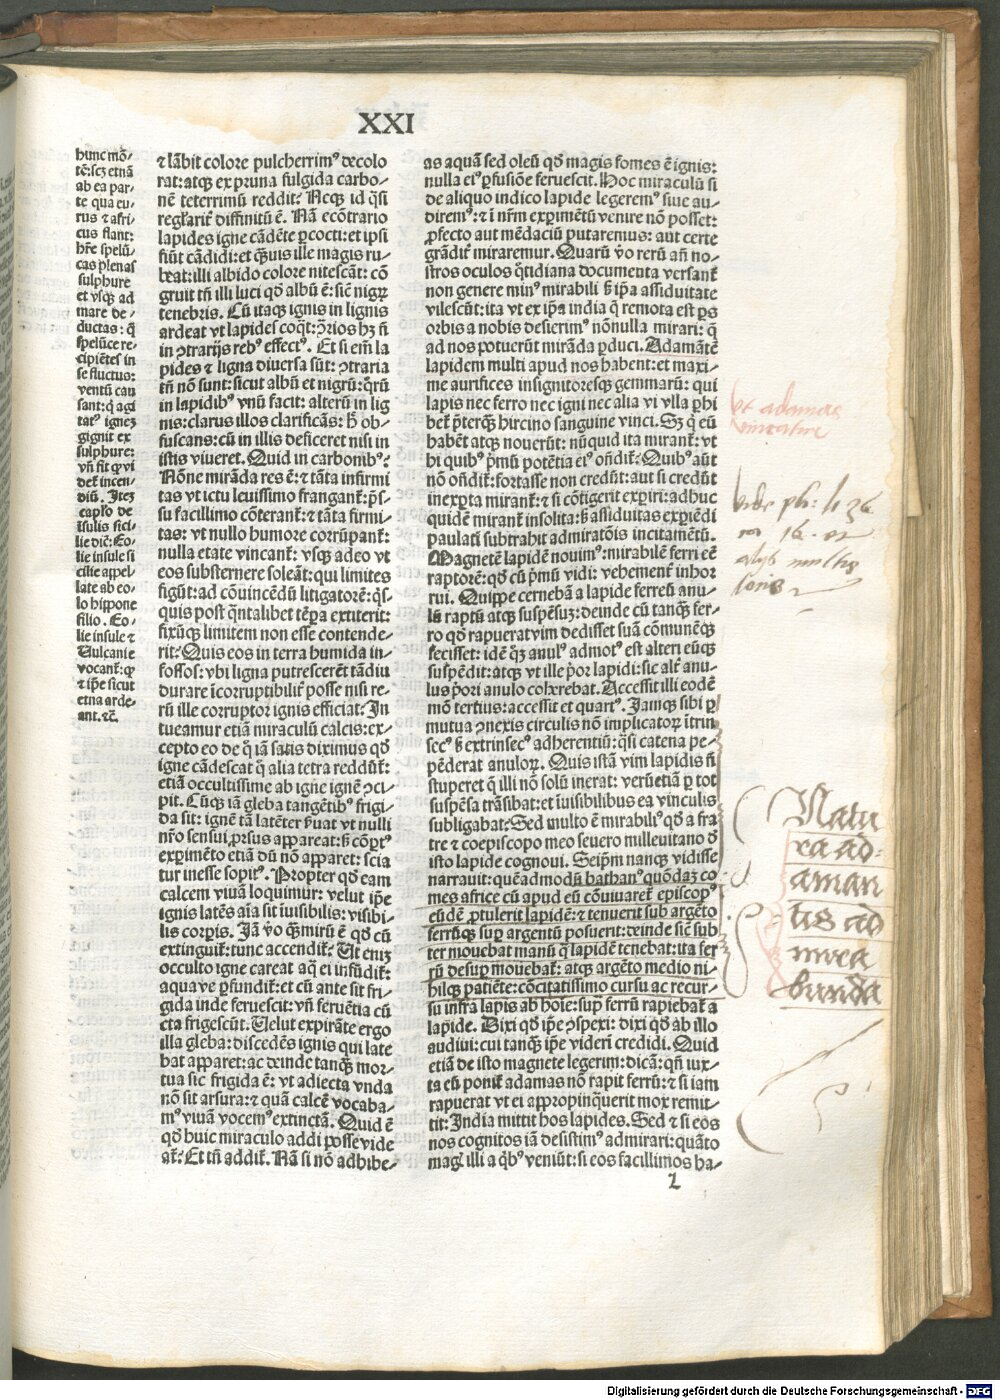 XXI
hunc mō-
tē: scꝫ etnā
ab ea par-
te qua eu-
rus ⁊ afri-
cus flant:
hr̄e spelū-
cas plenas
sulphure
et vsqꝫ ad
mare de-
ductas: q̄
spelūce re-
cipiētes in
se fluctus:
ventū cau
sant: q̇ agi
tatꝰ igneꝫ
gignit ex
sulphure:
vn̄ fit qꝫ vi
det̄ incen-
diū. Iteꝫ
capľo de
isulis sici-
lie dic̄: Eo-
lie insule si
cilie appel-
late ab eo-
lo hippone
filio. Eo-
lie insule ⁊
Vulcanie
vocant̄: qꝫ
⁊ ip̄e sicut
etna arde-
ant. ⁊c̄.
⁊ lābit colore pulcherrimꝰ decolo
rat: atqꝫ ex pruna fulgida carbo-
nē teterrimū reddit? Neqꝫ id q̄si
regľarit̄ diffinitū ē. Nā ecōtrario
lapides igne cādēte ꝑcocti: et ipsi
fiūt cādidi: et q̄uis ille magis ru-
beat: illi albido colore nitescāt: cō
gruit tn̄ illi luci qd̄ albū ē: sic̄ nigꝝ
tenebris. Cū itaqꝫ ignis in lignis
ardeat vt lapides coq̄t: ꝯ̄rios hꝫ n̄
in ꝯtrarijs rebꝰ effectꝰ. Et si em̄ la
pides ⁊ ligna diuersa sūt: ꝯtraria
tn̄ nō sunt: sicut albū et nigrū: q̄rū
in lapidibꝰ vnū facit: alterū in lig
nis: clarus illos clarificās: h̄ ob-
fuscans: cū in illis deficeret nisi in
istis viueret. Quid in carbonibꝰ?
Nōne mirāda res ē: ⁊ tāta infirmi
tas vt ictu leuissimo frangant̄: p̄s-
su facillimo cōterant̄: ⁊ tāta firmi-
tas: vt nullo humore corrūpant̄:
nulla etate vincant̄: vsqꝫ adeo vt
eos substernere soleāt: qui limites
figūt: ad cōuincēdū litigatorē: q̄s-
quis post q̄ntalibet tēpa extiterit:
fixūqꝫ limitem non esse contende-
rit? Quis eos in terra humida in-
fossos: vbi ligna putrescerēt tādiu
durare īcorruptibilit̄ posse nisi re-
rū ille corruptor ignis efficiat? In
tueamur etiā miraculū calcis: ex-
cepto eo de q̇ iā satis diximus qd̄
igne cādescat q̄ alia tetra reddūt̄:
etiā occultissime ab igne ignē ꝯci-
pit. Eūqꝫ iā gleba tangētibꝰ frigi-
da sit: ignē tā latēter ẜuat vt nulli
nr̄o sensui ꝓrsus appareat: ẜ cōꝑtꝰ
exꝑimēto etiā dū nō apparet: scia
tur inesse sopitꝰ. Propter qd̄ eam
calcem viuā loquimur: velut ip̄e
ignis latēs aīa sit īuisibilis: visibi-
lis corꝑis. Iā v̇o q̄ꝫmirū ē qd̄ cū
extinguit̄: tunc accendit̄? Ut eniꝫ
occulto igne careat aq̄ ei infūdit̄:
aqua ve ꝑfundit̄: et cū ante sit fri-
gida inde feruescit: vn̄ feruētia cū
cta frigescūt. Velut expirāte ergo
illa gleba: discedēs ignis qui late
bat apparet: ac deinde tanqꝫ mor-
tua sic frigida ē: vt adiecta vnda
nō sit arsura: ⁊ quā calcē vocaba-
mꝰ viuā vocemꝰ extinctā. Quid ē
qd̄ huic miraculo addi posse vide
at̄? Et tn̄ addit̄. Nā si nō adhibe-
as aquā sed oleū qd̄ magis fomes ē ignis:
nulla eiꝰ ꝑfusiōe feruescit. Hoc miraculū si
de aliquo indico lapide legeremꝰ siue au-
diremꝰ: ⁊ ī nr̄m exꝑimētū venire nō posset:
ꝓfecto aut mēdaciū putaremus: aut certe
grādit̄ miraremur. Quarū v̇o rerū añ no-
stros oculos q̄tidiana documenta versant̄
non genere minꝰ mirabili ẜ ip̄a assiduitate
vilescūt: ita vt ex ip̄a india q̄ remota est ꝑs
orbis a nobis desierimꝰ nōnulla mirari: q̄
ad nos potuerūt mirāda ꝑduci. Adamātē
lapidem multi apud nos habent: et maxi-
me aurifices insignitoresqꝫ gemmarū: qui
lapis nec ferro nec igni nec alia vi vlla ꝑhi
bet̄ p̄terqꝫ hircino sanguine vinci. Sꝫ q̇ eū
habēt atqꝫ nouerūt: nūquid ita mirant̄: vt
hi quibꝰ p̄mū potētia eiꝰ on̄dit̄? Quibꝰ aūt
nō on̄dit̄: fortasse non credūt: aut si credūt
inexꝑta mirant̄: ⁊ si cōtigerit exꝑiri: adhuc
quidē mirant̄ insolita: ẜ assiduitas exꝑiēdi
paulatī subtrahit admiratōis incitamētū.
Magnetē lapidē nouimꝰ: mirabilē ferri eē
raptorē: qd̄ cū p̄mū vidi: vehement̄ inhor
rui. Quippe cernebā a lapide ferreū anu-
lū raptū atqꝫ suspēsuꝫ: deinde cū tanqꝫ fer-
ro qd̄ rapuerat vim dedisset suā cōmunēqꝫ
fecisset: idē q̄ꝫ anulꝰ admotꝰ est alteri eūqꝫ
suspēdit: atqꝫ vt ille p̄or lapidi: sic alt̄ anu-
lus p̄ori anulo coherebat. Accessit illi eodē
mō tertius: accessit et quartꝰ. Iamqꝫ sibi ꝑ
mutua ꝯnexis circulis nō implicatoꝝ ītrin
secꝰ ẜ extrinsecꝰ adherentiū: q̄si catena pe-
pēderat anuloꝝ. Quis istā vim lapidis n̄
stuperet q̄ illi nō solū inerat: verūetiā ꝑ tot
suspēsa trāsibat: et īuisibilibus ea vinculis
subligabat? Sed multo ē mirabiliꝰ qd̄ a fra
tre ⁊ coepiscopo meo seuero milleuitano d̄
isto lapide cognoui. Seip̄m nanqꝫ vidisse
narrauit: quēadmodū bathanꝰ quōdaꝫ co-
mes africe cū apud eū cōuiuaret̄ episcopꝰ
eūdē ꝓtulerit lapidē: ⁊ tenuerit sub argēto
ferrūqꝫ suꝑ argentū posuerit: deinde sic̄ sub
ter mouebat manū q̄ lapidē tenebat: ita fer
rū desuꝑ mouebat̄: atqꝫ argēto medio ni-
hilqꝫ patiēte: cōcitatissimo cursu ac recur-
su infra lapis ab hoīe: suꝑ ferrū rapiebat̄ a
lapide. Dixi qd̄ ip̄e ꝯspexi: dixi qd̄ ab illo
audiui: cui tanqꝫ ip̄e videri credidi. Quid
etiā de isto magnete legerim: dicā: qn̄ iux-
ta eū ponit̄ adamas nō rapit ferrū: ⁊ si iam
rapuerat vt ei appropinquerit mox remit-
tit: India mittit hos lapides. Sed ⁊ si eos
nos cognitos iā desistimꝰ admirari: quāto
magꝭ illi a q̇bꝰ veniūt: si eos facillimos ha-
2
vt adamas
vincatur
vide
Natu
ra ad-
aman
tis ad
mira
bunda
Digitalisierung gefördert durch die Deutsche Forschungsgemeinschaft - DFG